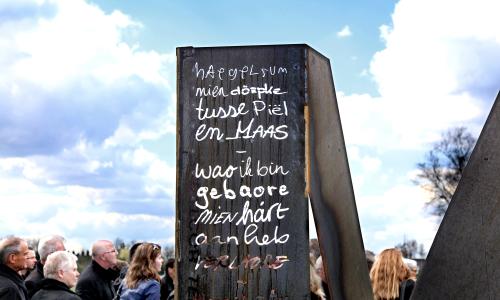 haegelsum
mien dörpke
tusse Piël
en MAAS
–
wao ik bin
gebaore
MIEN hárt
aan heb
VERLAORE